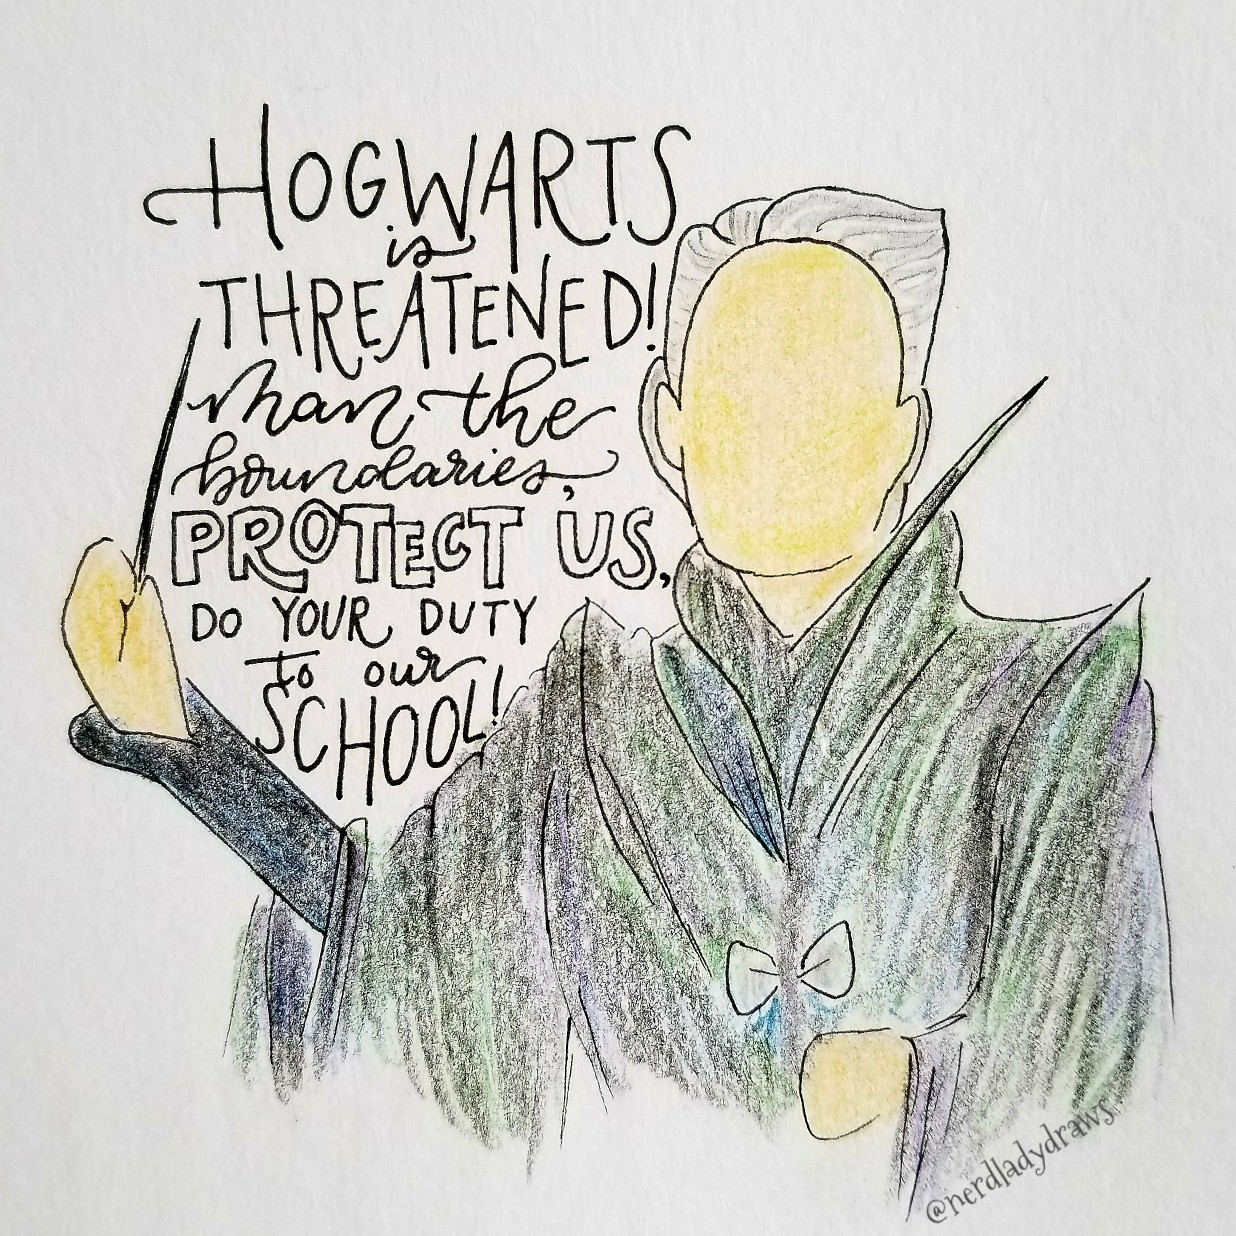 HOGWARTS
is
THREATENED!
Man the
boundaries,
PROTECT US,
DO YOUR DUTY
to our
SCHOOL!
@nerdladydraws